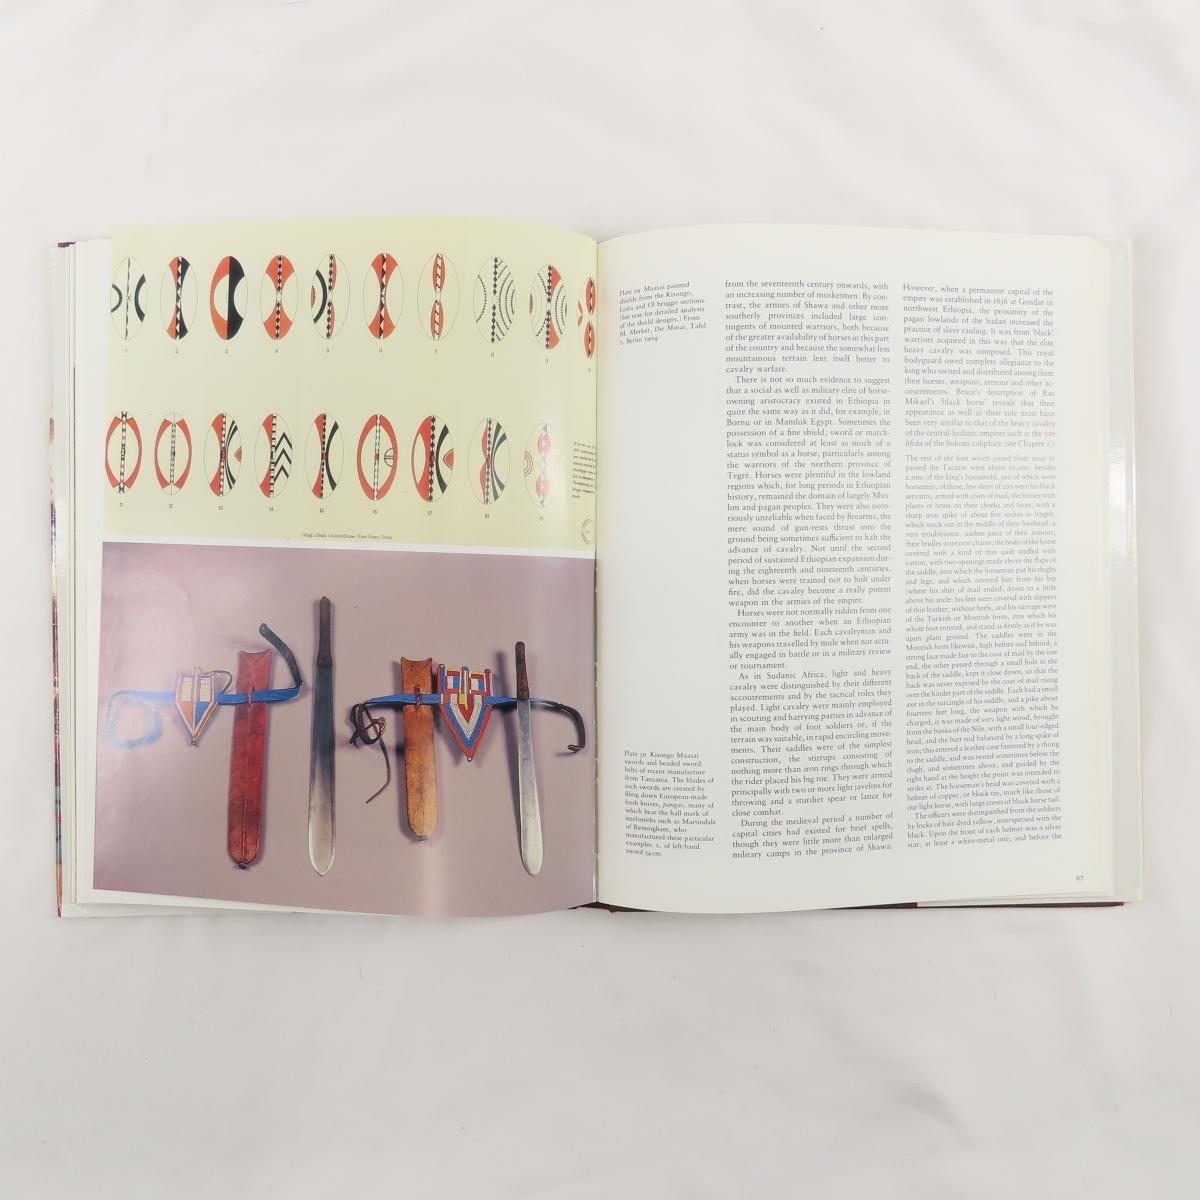 1
2
3
4
5
6
7
8
9
11
12
13
14
15
16
17
18
19
Plate 29 Maasai painted
shields from the Kisongo,
Loita and Ol bruggo sections.
(See text for detailed analysis
of the shield designs.) From
M. Merker, Die Masai, Tafel
Berlin 1904.
Plate 30 Kisongo Maasai
swords and beaded sword
belts of recent manufacture
from Tanzania. The blades of
such swords are created by
filing down European-made
bush knives, pangas, many of
which bear the hall mark of
steelsmiths such as Martindale
of Birmingham, who
manufactured these particular
examples. L. of left-hand
sword 54 cm.
from the seventeenth century onwards, with
an increasing number of musketmen. By con-
trast, the armies of Shawa and other more
southerly provinces included large con-
tingents of mounted warriors, both because
of the greater availability of horses in this part
of the country and because the somewhat less
mountainous terrain lent itself better to
cavalry warfare.
There is not so much evidence to suggest
that a social as well as military elite of horse-
owning aristocracy existed in Ethiopia in
quite the same way as it did, for example, in
Bornu or in Mamluk Egypt. Sometimes the
possession of a fine shield, sword or match-
lock was considered at least as much of a
status symbol as a horse, particularly among
the warriors of the northern province of
Tegré. Horses were plentiful in the lowland
regions which, for long periods in Ethiopian
history, remained the domain of largely Mus-
lim and pagan peoples. They were also noto-
riously unreliable when faced by firearms, the
mere sound of gun-rests thrust into the
ground being sometimes sufficient to halt the
advance of cavalry. Not until the second
period of sustained Ethiopian expansion dur-
ing the eighteenth and nineteenth centuries,
when horses were trained not to bolt under
fire, did the cavalry become a really potent
weapon in the armies of the empire.
Horses were not normally ridden from one
encounter to another when an Ethiopian
army was in the field. Each cavalryman and
his weapons travelled by mule when not actu-
ally engaged in battle or in a military review
or tournament.
As in Sudanic Africa, light and heavy
cavalry were distinguished by their different
accoutrements and by the tactical roles they
played. Light cavalry were mainly employed
in scouting and harrying parties in advance of
the main body of foot soldiers or, if the
terrain was suitable, in rapid encircling move-
ments. Their saddles were of the simplest
construction, the stirrups consisting of
nothing more than iron rings through which
the rider placed his big toe. They were armed
principally with two or more light javelins for
throwing and a sturdier spear or lance for
close combat.
During the medieval period a number of
capital cities had existed for brief spells,
though they were little more than enlarged
military camps in the province of Shawa.
However, when a permanent capital of the
empire was established in 1636 at Gondar in
northwest Ethiopia, the proximity of the
pagan lowlands of the Sudan increased the
practice of slave raiding. It was from 'black'
warriors acquired in this way that the elite
heavy cavalry was composed. This royal
bodyguard owed complete allegiance to the
king who owned and distributed among them
their horses, weapons, armour and other ac-
coutrements. Bruce's description of Ras
Mikael's 'black horse' reveals that their
appearance as well as their role must have
been very similar to that of the heavy cavalry
of the central Sudanic empires such as the yan
lifida of the Sokoto caliphate (see Chapter 2):
The rest of the foot which joined them since he
passed the Tacazze were about 10,000, besides
2,000 of the king's household, 500 of which were
horsemen; of these, few short of 200 were his black
servants, armed with coats of mail, the horses with
plates of brass on their cheeks and faces, with a
sharp iron spike of about five inches in length,
which stuck out in the middle of their forehead, a
very troublesome, useless piece of their armour;
their bridles were iron chains; the body of the horse
covered with a kind of thin quilt stuffed with
cotton, with two openings made above the flaps of
the saddle, into which the horseman put his thighs
and legs, and which covered him from his hip
(where his shirt of mail ended) down to a little
above his ancle: his feet were covered with slippers
of thin leather, without heels, and his stirrups were
of the Turkish or Moorish form, into which his
whole foot entered, and stand as firmly as if he was
upon plain ground. The saddles were in the
Moorish form likewise, high before and behind; a
strong lace made fast to the coat of mail by the one
end, the other passed through a small hole in the
back of the saddle, kept it close down, so that the
back was never exposed by the coat of mail rising
over the hinder part of the saddle. Each had a small
axe in the surcingle of his saddle, and a pike about
fourteen feet long, the weapon with which he
charged; it was made of very light wood, brought
from the banks of the Nile, with a small four-edged
head, and the butt end balanced by a long spike of
iron; this entered a leather case fastened by a thong
to the saddle, and was rested sometimes below the
thigh, and sometimes above, and guided by the
right hand at the height the point was intended to
strike at. The horseman's head was covered with a
helmet of copper, or block tin, much like those of
our light horse, with large crests of black horse tail.
The officers were distinguished from the soldiers
by locks of hair dyed yellow, interspersed with the
black. Upon the front of each helmet was a silver
star, at least a white-metal one; and before the
97